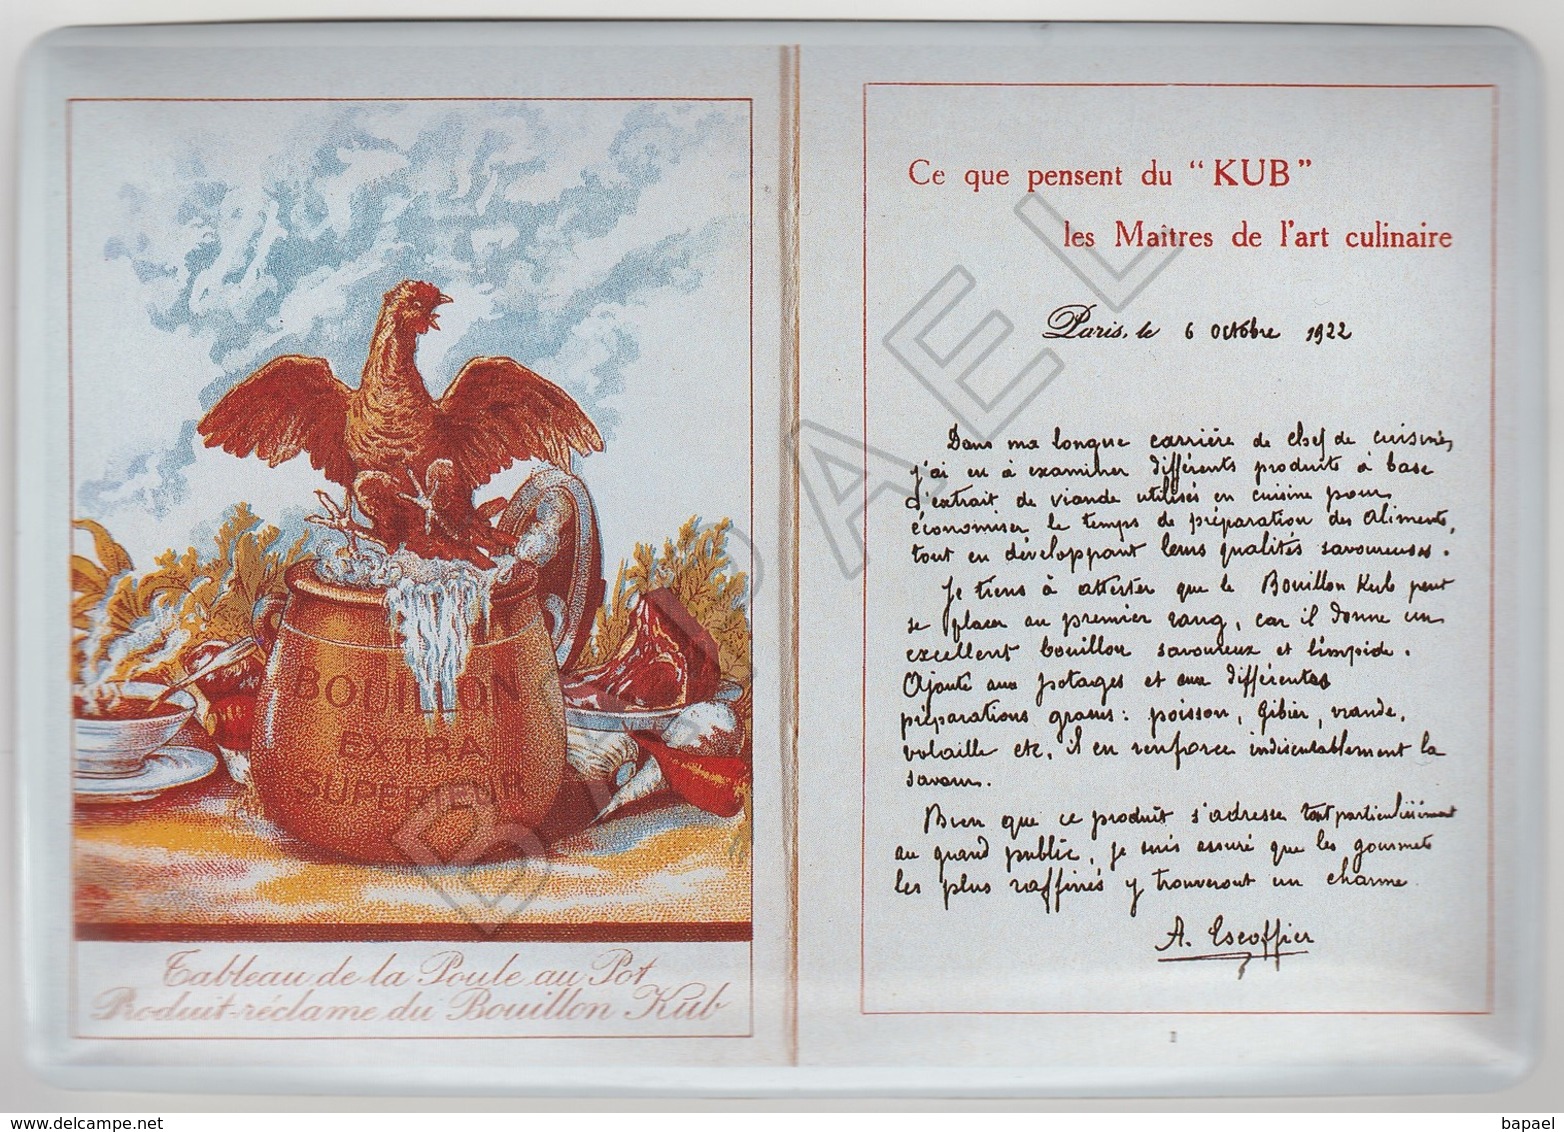 BOUILLON
EXTRA
SUPERIEUR
Tableau de la Poule au Pot
Produit-réclame du Bouillon Kub
Ce que pensent du "KUB"
les Maîtres de l'art culinaire
Paris, le 6 Octobre 1922
Dans ma longue carrière de chef de cuisines,
j'ai eu à examiner différents produits à base
d'extrait de viande utilisés en cuisine pour
économiser le temps de préparation des aliments,
tout en développant leurs qualités savoureuses.
Je tiens à attester que le Bouillon Kub peut
se placer au premier rang, car il donne un
excellent bouillon savoureux et limpide.
Ajouté aux potages et aux différentes
préparations grasses : poisson, gibier, viande,
volaille etc, il en renforce indiscutablement la
saveur.
Bien que ce produit s'adresse tout particulièrement
au grand public, je suis assuré que les gourmets
les plus raffinés y trouveront un charme.
A. Escoffier
1
BAPAEL
© delcampe.net
bapael